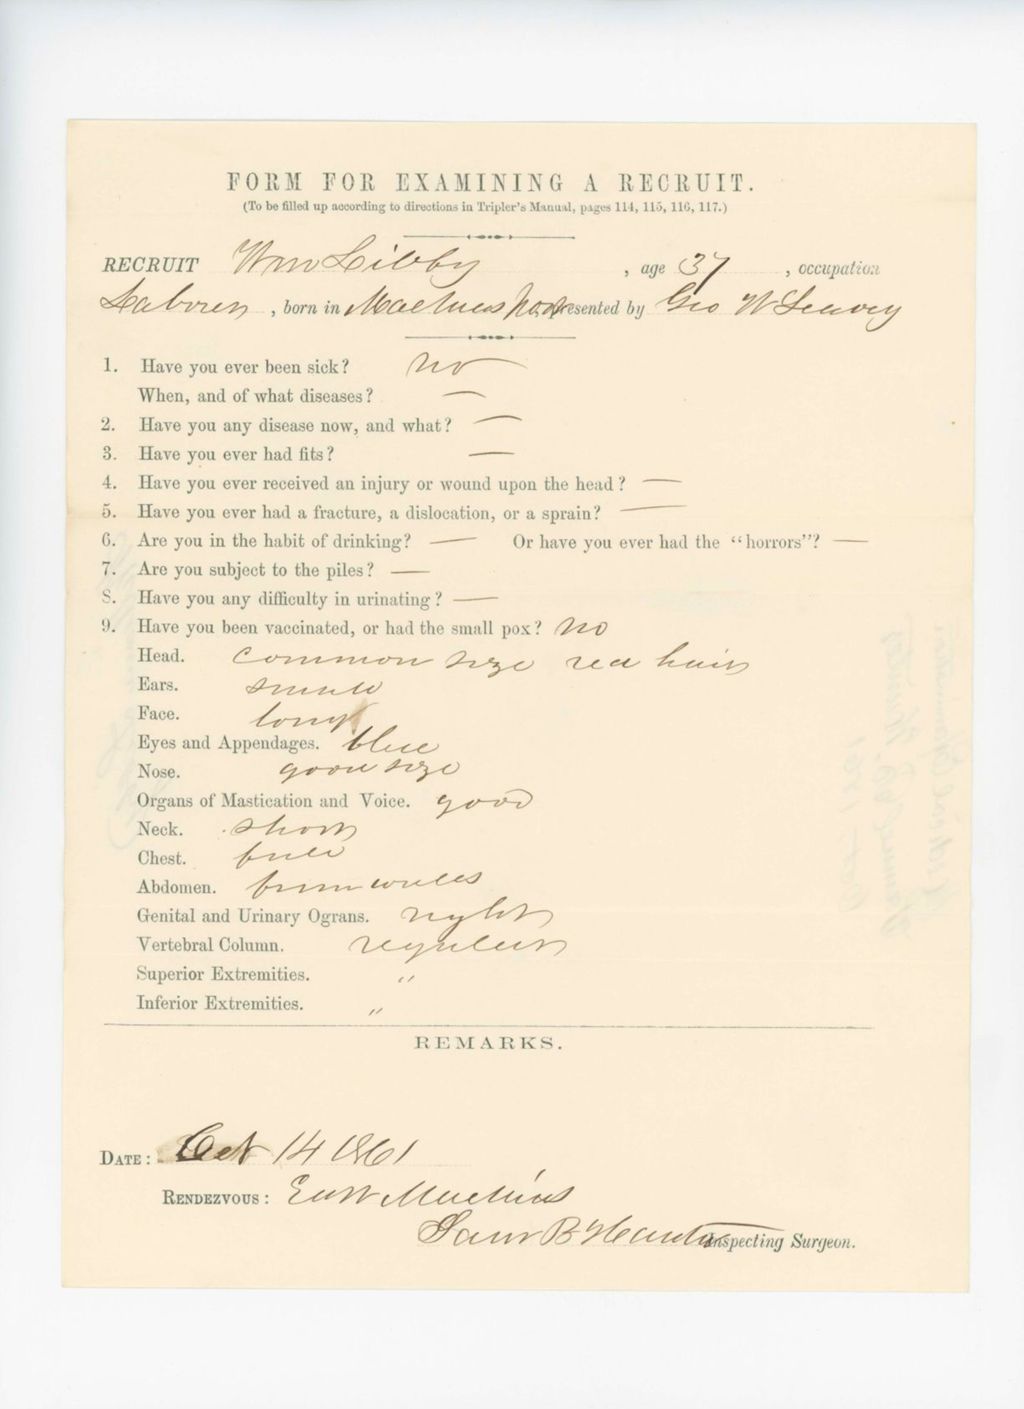 FORM FOR EXAMINING A RECRUIT.
(To be filled up according to directions in Tripler's Manual, pages 114, 115, 116, 117.)
RECRUIT Wm Libby , age 37 , occupation
Laborer , born in Machias Port presented by Geo W
1. Have you ever been sick? no
When, and of what diseases? —
2. Have you any disease now, and what? —
3. Have you ever had fits? —
4. Have you ever received an injury or wound upon the head? —
5. Have you ever had a fracture, a dislocation, or a sprain? —
6. Are you in the habit of drinking? — Or have you ever had the "horrors"? —
7. Are you subject to the piles? —
8. Have you any difficulty in urinating? —
9. Have you been vaccinated, or had the small pox? No
Head. common size red hair
Ears. small
Face. long
Eyes and Appendages. blue
Nose. good size
Organs of Mastication and Voice. good
Neck. short
Chest. full
Abdomen. firm walls
Genital and Urinary Ograns. right
Vertebral Column. regular
Superior Extremities. "
Inferior Extremities. "
REMARKS.
DATE: Oct 14 1861
RENDEZVOUS: East Machias
Sam B Hunter Inspecting Surgeon.